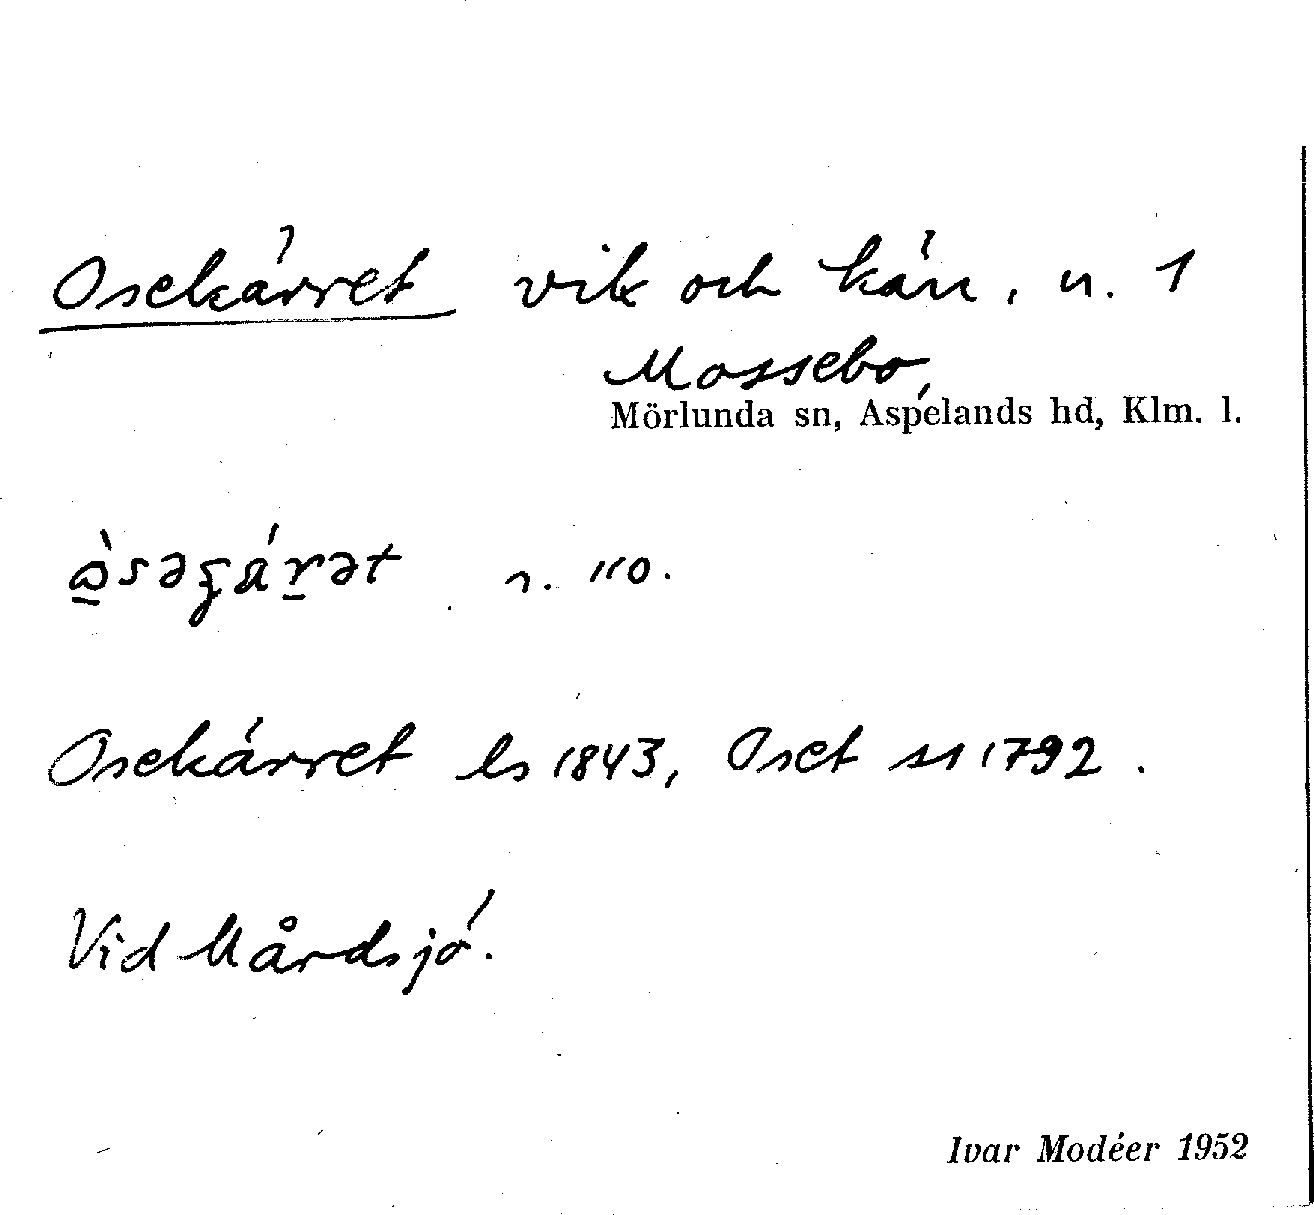 Osekärret vik och kärr, n. 1
Mossebo,
Mörlunda sn, Aspelands hd, Klm. l.
n. 110.
Osekärret ls 1843, Oset s1 1792.
Vid Mårdsjö.
Ivar Modéer 1952